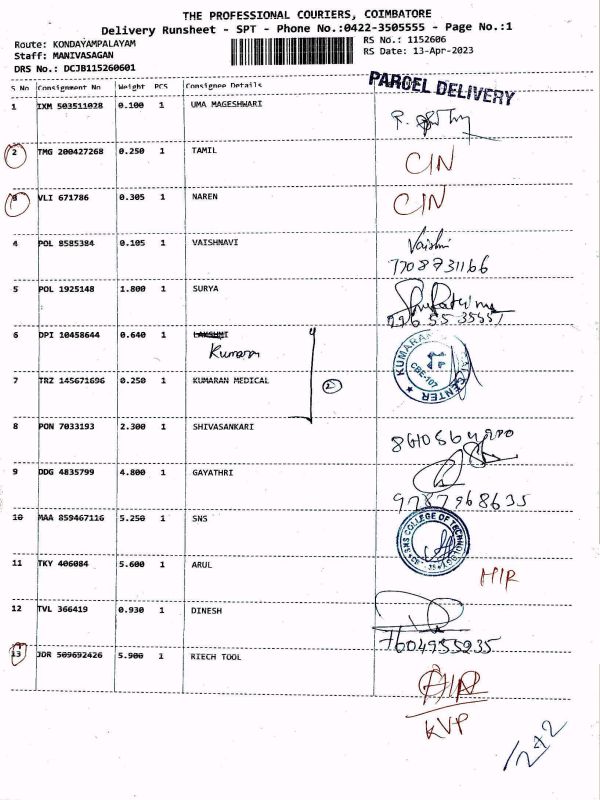 THE PROFESSIONAL COURIERS, COIMBATORE
Delivery Runsheet - SPT - Phone No.:0422-3505555 - Page No.:1
Route: KONDAYAMPALAYAM RS No.: 1152606
Staff: MANIVASAGAN RS Date: 13-Apr-2023
DRS No.: DCJB115260601
PARCEL DELIVERY
S No Consignment No Weight PCS Consignee Details
1 IXM 503511028 0.100 1 UMA MAGESHWARI
2 TMG 200427268 0.250 1 TAMIL CIN
3 VLI 671786 0.305 1 NAREN CIN
4 POL 8585384 0.105 1 VAISHNAVI Vaishni
7708731166
5 POL 1925148 1.800 1 SURYA
6 DPI 10458644 0.640 1 LAKSHMI
Kumaran
7 TRZ 145671696 0.250 1 KUMARAN MEDICAL 2
KUMARAN CENTER
CBE-107
8 PON 7033193 2.300 1 SHIVASANKARI
9 DDG 4835799 4.800 1 GAYATHRI
9787968635
10 MAA 859467116 5.250 1 SNS
SNS COLLEGE OF TECHNOLOGY
11 TKY 406084 5.600 1 ARUL HIR
12 TVL 366419 0.930 1 DINESH
7604955235
13 JDR 509692426 5.900 1 RIECH TOOL
KVP